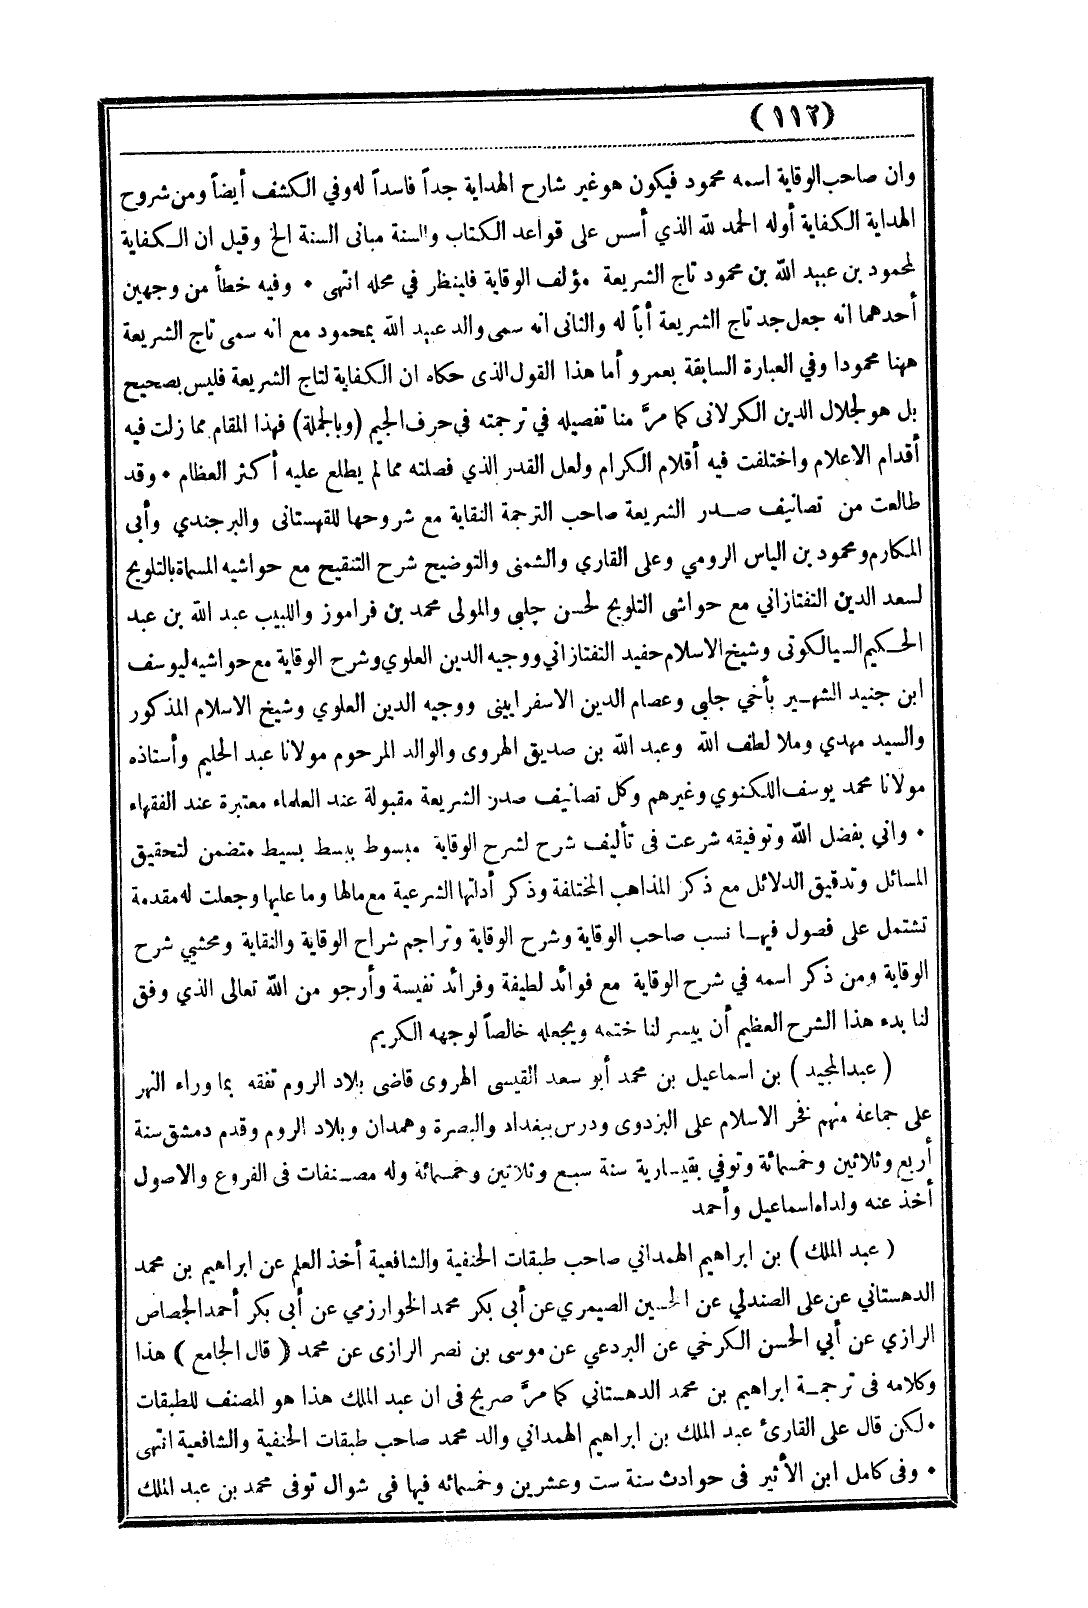 (١١٢)
وان صاحب الوقاية اسمه محمود فيكون هو غير شارح الهداية جداً فاسداً له وفي الكشف أيضاً ومن شروح
الهداية الكفاية أوله الحمد لله الذي أسس على قواعد الكتاب والسنة مبانى السنة الخ وقيل ان الكفاية
لمحمود بن عبيد الله بن محمود تاج الشريعة مؤلف الوقاية فلينظر في محله انتهى • وفيه خطأ من وجهين
أحدهما انه جعل جد تاج الشريعة أباً له والثانى انه سمى والد عبيد الله بمحمود مع انه سمى تاج الشريعة
ههنا محمودا وفي العبارة السابقة بعمر و أما هذا القول الذى حكاه ان الكفاية لتاج الشريعة فليس بصحيح
بل هو لجلال الدين الكرلانى كما مرَّ منا تفصيله في ترجمته في حرف الجيم (وبالجملة) فهذا المقام مما زلت فيه
أقدام الاعلام واختلفت فيه أقلام الكرام ولعل القدر الذي فصلته مما لم يطلع عليه أكثر العظام • وقد
طالعت من تصانيف صدر الشريعة صاحب الترجمة النقاية مع شروحها للقهستانى والبرجندي وأبى
المكارم ومحمود بن الياس الرومي وعلى القاري والشمنى والتوضيح شرح التنقيح مع حواشيه المسماة بالتلويح
لسعد الدين التفتازاني مع حواشى التلويح لحسن چلبى والمولى محمد بن فراموز واللبيب عبد الله بن عبد
الحكيم السيالكوتى وشيخ الاسلام حفيد التفتازاني ووجيه الدين العلوي وشرح الوقاية مع حواشيه ليوسف
ابن جنيد الشهير بأخي جلبى وعصام الدين الاسفراينى ووجيه الدين العلوي وشيخ الاسلام المذكور
والسيد مهدي وملا لطف الله وعبد الله بن صديق الهروى والوالد المرحوم مولانا عبد الحليم وأستاذه
مولانا محمد يوسف اللكنوي وغيرهم وكل تصانيف صدر الشريعة مقبولة عند العلماء معتبرة عند الفقهاء
• واني بفضل الله وتوفيقه شرعت فى تأليف شرح لشرح الوقاية مبسوط ببسط بسيط متضمن لتحقيق
المسائل وتدقيق الدلائل مع ذكر المذاهب المختلفة وذكر أدلتها الشرعية مع مالها وما عليها وجعلت له مقدمة
تشتمل على فصول فيها نسب صاحب الوقاية وشرح الوقاية وتراجم شراح الوقاية والنقاية ومحشيي شرح
الوقاية ومن ذكر اسمه في شرح الوقاية مع فوائد لطيفة وفرائد نفيسة وأرجو من الله تعالى الذي وفق
لنا بدء هذا الشرح العظيم أن ييسر لنا ختمه ويجعله خالصاً لوجهه الكريم
( عبدالمجيد ) بن اسماعيل بن محمد أبو سعد القيسى الهروى قاضى بلاد الروم تفقه بما وراء النهر
على جماعة منهم فخر الاسلام على البزدوى ودرس ببغداد والبصرة وهمدان وبلاد الروم وقدم دمشق سنة
أربع وثلاثين وخمسمائة وتوفي بقيسارية سنة سبع وثلاثين وخمسمائة وله مصنفات فى الفروع والاصول
أخذ عنه ولداه اسماعيل وأحمد
( عبد الملك ) بن ابراهيم الهمداني صاحب طبقات الحنفية والشافعية أخذ العلم عن ابراهيم بن محمد
الدهستاني عن على الصندلي عن الحسين الصيمري عن أبى بكر محمد الخوارزمي عن أبى بكر أحمد الجصاص
الرازي عن أبي الحسن الكرخي عن البردعي عن موسى بن نصر الرازى عن محمد ( قال الجامع ) هذا
وكلامه فى ترجمة ابراهيم بن محمد الدهستاني كما مرَّ صريح فى ان عبد الملك هذا هو المصنف للطبقات
• لكن قال على القارئ عبد الملك بن ابراهيم الهمداني والد محمد صاحب طبقات الحنفية والشافعية انتهى
• وفى كامل ابن الأثير فى حوادث سنة ست وعشرين وخمسمائه فيها فى شوال توفى محمد بن عبد الملك